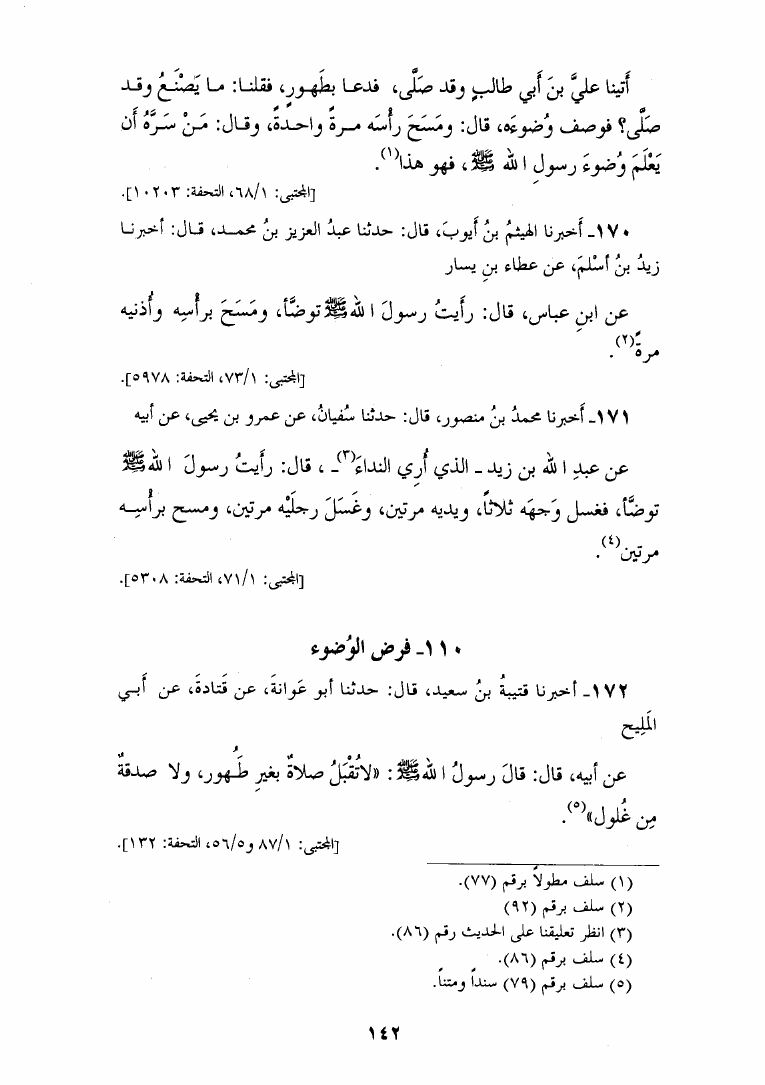 أَتينا عليَّ بنَ أَبي طالبٍ وقد صَلَّى، فدعـا بِطَهـورٍ، فقلنـا: مـا يَصْنَـعُ وقـد
صَلَّى؟ فوصف وُضوءَه، قال: ومَسَحَ رأْسَه مـرةً واحـدةً، وقـال: مَـنْ سَـرَّهُ أن
يَعْلَمَ وُضوءَ رسولِ الله ﷺ، فهو هذا(١).
[المجتبى: ٦٨/١، التحفة: ١٠٢٠٣].
١٧٠ـ أخبرنا الهيثمُ بنُ أَيوبَ، قال: حدثنا عبدُ العزيز بنُ محمـد، قـال: أخبرنـا
زيدُ بنُ أسْلمَ، عن عطاء بنِ يسار
عن ابنِ عباس، قال: رأَيتُ رسولَ الله ﷺ توضَّأَ، ومَسَحَ برأْسِه وأُذنيه
مرةً(٢).
[المجتبى: ٧٣/١، التحفة: ٥٩٧٨].
١٧١ـ أَخبرنا محمدُ بنُ منصور، قال: حدثنا سُفيانُ، عن عمرو بن يحيى، عن أبيه
عن عبدِ الله بن زيد ـ الذي أُرِي النداءَ(٣)ـ ، قال: رأَيتُ رسولَ الله ﷺ
توضَّأَ، فغسل وَجهَه ثلاثاً، ويديه مرتين، وغَسَلَ رجلَيْه مرتين، ومسح برأْسِـه
مرتين(٤).
[المجتبى: ٧١/١، التحفة: ٥٣٠٨].
١١٠ـ فرض الوُضوء
١٧٢ـ أخبرنا قتيبةُ بنُ سعيد، قال: حدثنا أبو عَوانةَ، عن قَتادةَ، عن أَبـي
المَلِيح
عن أبيه، قال: قالَ رسولُ الله ﷺ: «لاتُقْبَلُ صلاةٌ بغيرِ طُـهور، ولا صدقةٌ
مِن غُلول»(٥).
[المجتبى: ٨٧/١ و٥٦/٥، التحفة: ١٣٢].
(١) سلف مطولاً برقم (٧٧).
(٢) سلف برقم (٩٢)
(٣) انظر تعليقنا على الحديث رقم (٨٦).
(٤) سلف برقم (٨٦).
(٥) سلف برقم (٧٩) سنداً ومتناً.
١٤٢